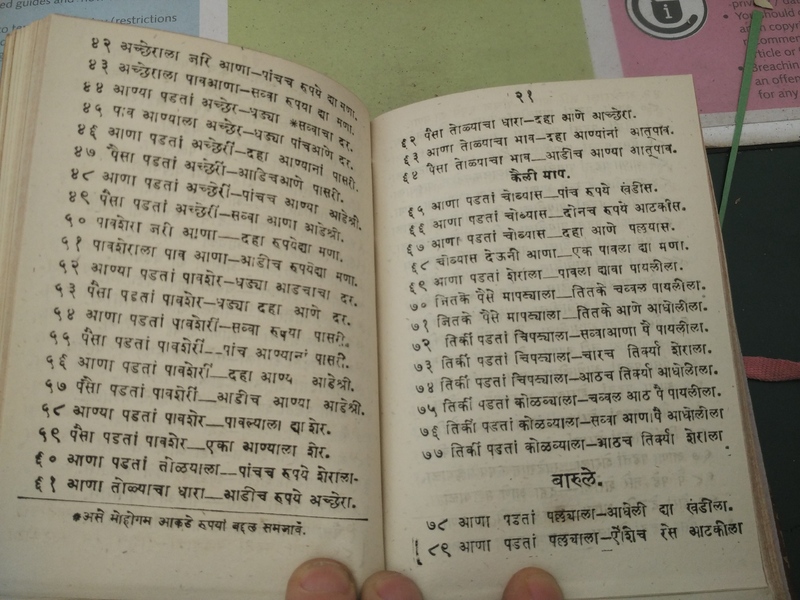 ed guides and
/restrictions
४२ अच्छेराला जरि आणा—पांचच रुपये द्या मणा.
४३ अच्छेराला पावआणा—सव्वा रुपया द्या मणा.
४४ आण्या पडतां अच्छेर—धड्या *सव्वाचा दर.
४५ पाव आण्याला अच्छेर—धड्या पांचआणे दर.
४६ आणा पडतां अच्छेरीं—दहा आण्यानां पासरी.
४७ पैसा पडतां अच्छेरीं—आडिचआणे पासरी.
४८ आणा पडतां अच्छेरीं—पांचच आण्या आडेश्री.
४९ पैसा पडतां अच्छेरीं—सव्वा आणा आडेश्री.
५० पावशेरा जरी आणा—दहा रुपयेद्या मणा.
५१ पावशेराला पाव आणा—आडीच रुपयेद्या मणा.
५२ आण्या पडतां पावशेर—धड्या आडचाचा दर.
५३ पैसा पडतां पावशेर—धड्या दहा आणे दर.
५४ आणा पडतां पावशेरीं—सव्वा रुपया पासरी.
५५ पैसा पडतां पावशेरीं—पांच आण्यानां पासरी.
५६ आणा पडतां पावशेरीं—दहा आण्या आडेश्री.
५७ पैसा पडतां पावशेरीं—आडीच आण्या आडेश्री.
५८ आण्या पडतां पावशेर—पावल्याला द्या शेर.
५९ पैसा पडतां पावशेर—एका आण्याला शेर.
६० आणा पडतां तोळयाला—पांचच रुपये शेराला.
६१ आणा तोळ्याचा धारा—आडीच रुपये अच्छेरा.
*असे मोहोगम आकडे रुपयां बद्दल समजावे.
२१
६२ पैसा तोळ्याचा धारा—दहा आणे अच्छेरा.
६३ आणा तोळ्याचा भाव—दहा आण्यांनां आत्पाव.
६४ पैसा तोळ्याचा भाव—आडीच आण्या आत्पाव.
कैली माप.
६५ आणा पडतां चोथ्यास—पांच रुपये खंडीस.
६६ आणा पडतां चोथ्यास—दोनच रुपये आटकीस.
६७ आणा पडतां चोथ्यास—दहा आणे पलयास.
६८ चोथ्यास देऊनी आणा—एक पावला द्या मणा.
६९ आणा पडतां शेराला—पावला द्यावा पायलीला.
७० जितके पैसे मापट्याला—तितके चव्वल पायलीला.
७१ जितके पैसे मापट्याला—तितके आणे आधोलीला.
७२ तिर्की पडतां चिपट्याला—सव्वाआणा पै पायलीला.
७३ तिर्की पडतां चिपट्याला—चारच तिर्क्या शेराला.
७४ तिर्की पडतां चिपट्याला—आठच तिर्क्या आधोलीला.
७५ तिर्की पडतां कोळव्याला—चव्वल आठ पै पायलीला.
७६ तिर्की पडतां कोळव्याला—सव्वा आणा पै आधोलीला
७७ तिर्की पडतां कोळव्याला—आठच तिर्क्या शेराला
बारुले.
७८ आणा पडतां पलयाला—आधेली द्या खंडीला.
८९ आणा पडतां पलयाला—ऐंशिच रेस आटकीला